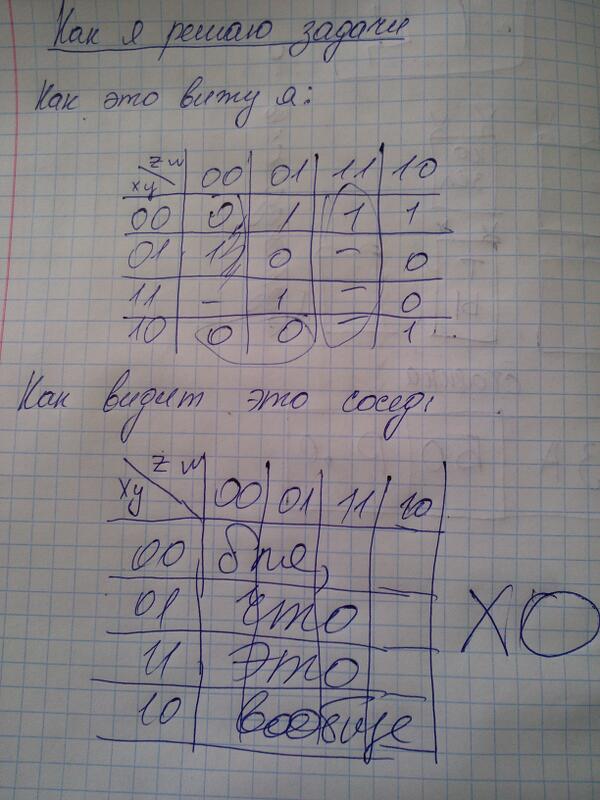 Как я решаю задачи
Как это вижу я:
zw
xy 00 01 11 10
00 0 1 1 1
01 1 0 – 0
11 – 1 – 0
10 0 0 – 1
Как видит это сосед:
zw
xy 00 01 11 10
00 бля,
01 что
11 это
10 вообще
ХО